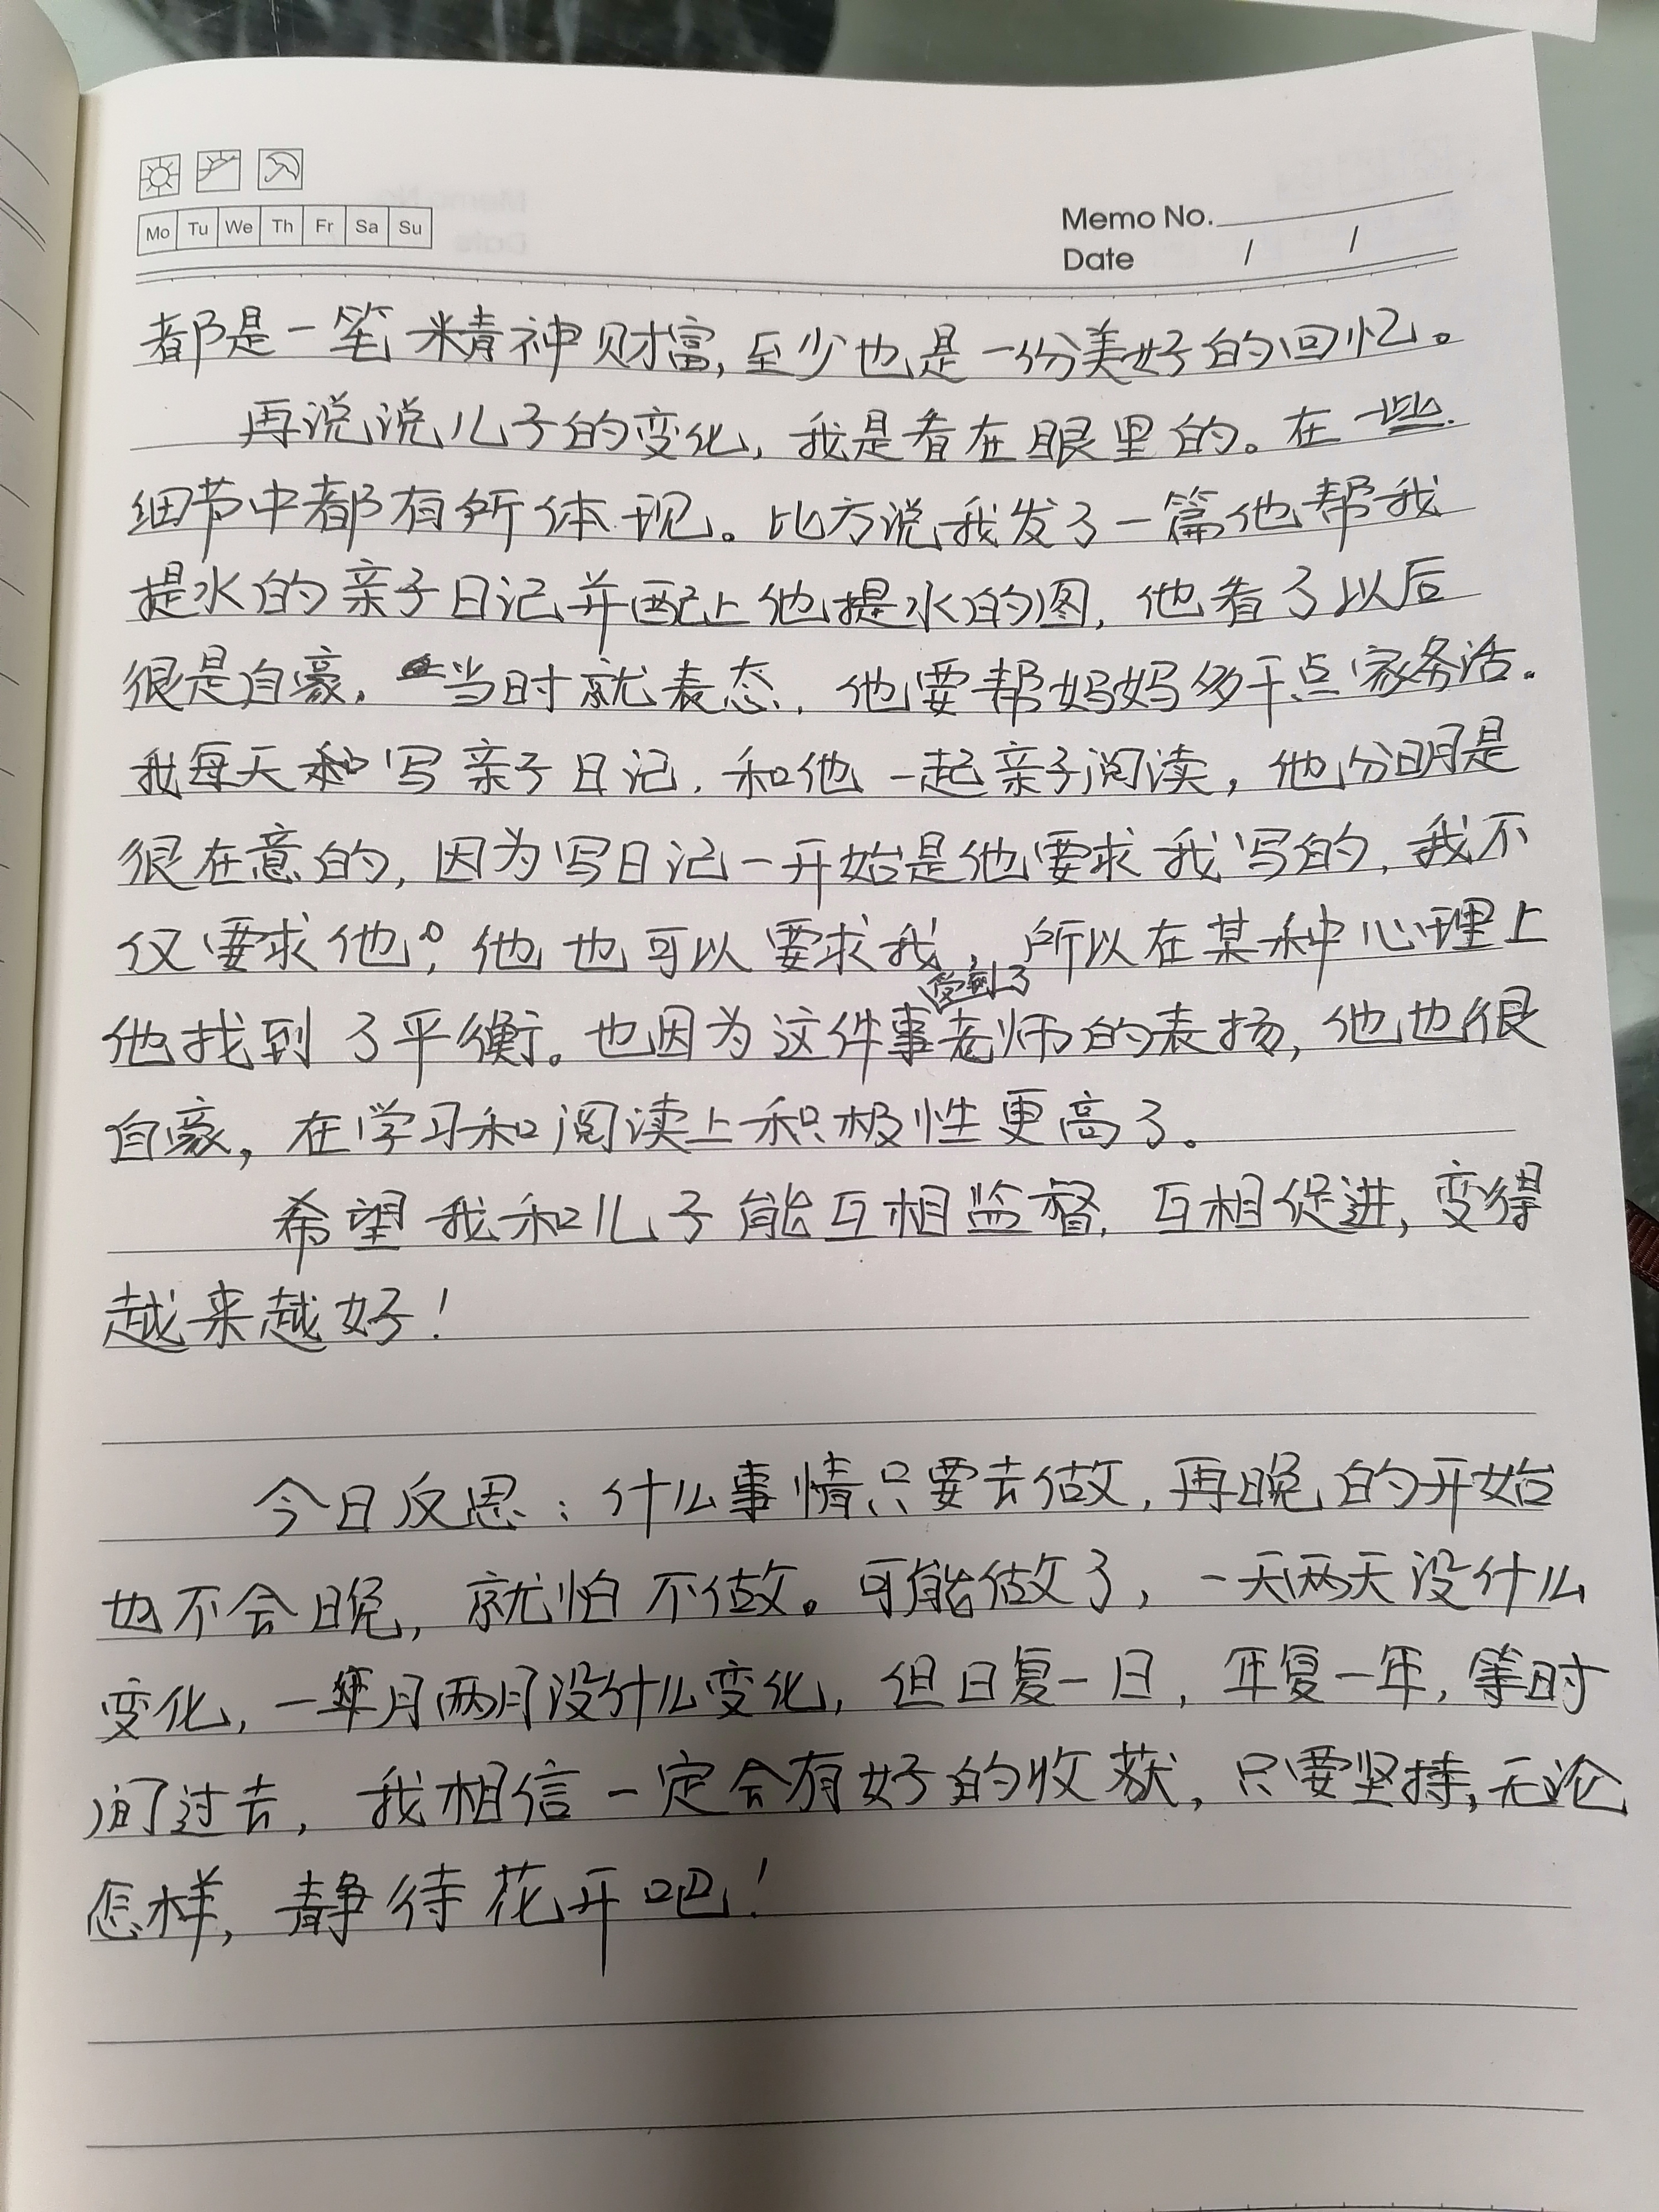 Mo Tu We Th Fr Sa Su
Memo No.
Date / /
都是一笔精神财富,至少也是一份美好的回忆。
再说说儿子的变化,我是看在眼里的。在一些
细节中都有所体现。比方说我发了一篇他帮我
提水的亲子日记并配上他提水的图,他看了以后
很是自豪,当时就表态,他要帮妈妈多干点家务活。
我每天写亲子日记,和他一起亲子阅读,他分明是
很在意的,因为写日记一开始是他要求我写的,我不
仅要求他,他也可以要求我,所以在某种心理上
他找到了平衡。也因为这件事受到了老师的表扬,他也很
自豪,在学习和阅读上积极性更高了。
希望我和儿子能互相监督,互相促进,变得
越来越好!
今日反思:什么事情只要去做,再晚的开始
也不会晚,就怕不做。可能做了,一天两天没什么
变化,一月两月没什么变化,但日复一日,年复一年,等时
间过去,我相信一定会有好的收获,只要坚持,无论
怎样,静待花开吧!